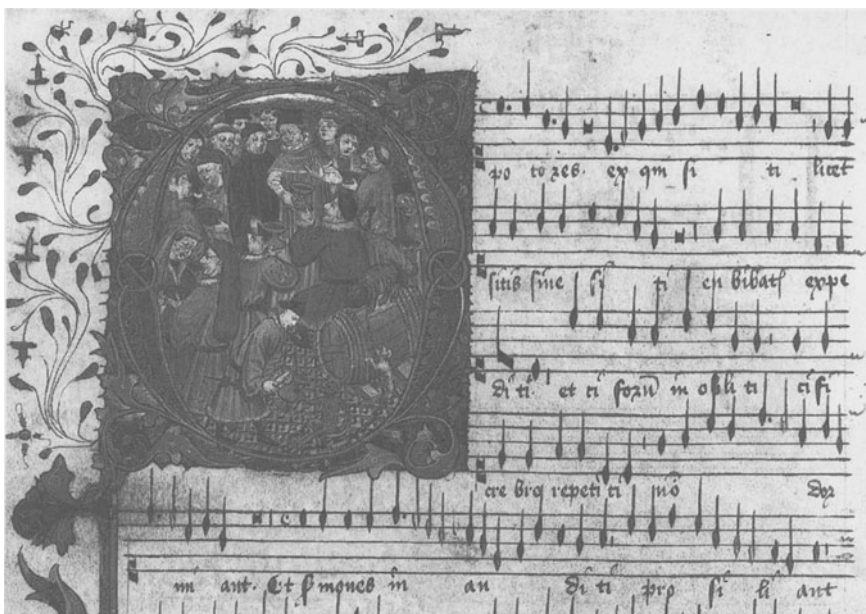 po to res. ex qui si ti licet
sitis sine si ti en bibatis expe
diti et ti forum in obliti ti si
cre bro repetiti nō dor
mi ant. Et sermones in au di ti pro si li ant